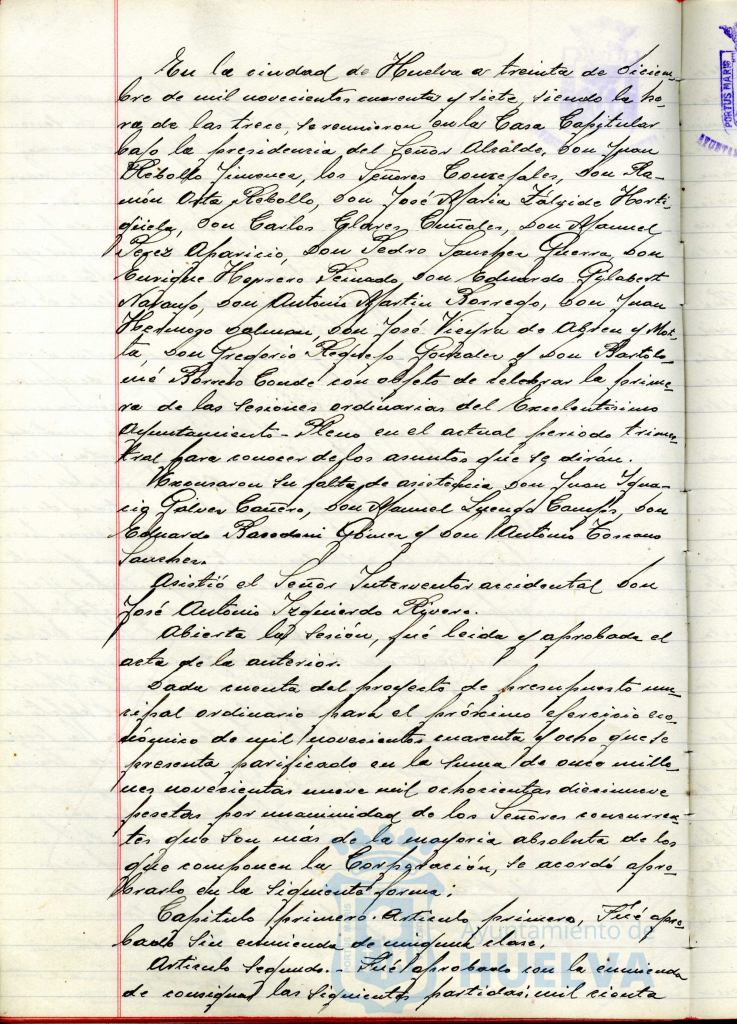 En la ciudad de Huelva a treinta de Diciem-
bre de mil novecientos cuarenta y siete, siendo la ho-
ra de las trece, se reunieron en la Casa Capitular
bajo la presidencia del Señor Alcalde, Don Juan
Rebollo Jimenez, los Señores Concejales, Don Ra-
món Orta Rebollo, Don José María Zálvide Horti-
güela, Don Carlos Glares Cuñales, Don Manuel
Perez Aparicio, Don Pedro Sanchez Guerra, Don
Enrique Herrero Peinado, Don Eduardo Gylabert
Naranjo, Don Antonio Martin Borrego, Don Juan
Hermozo Dalman, Don José Vieyra de Abreu y Mot-
ta, Don Gregorio Requejo Gonzalez y Don Bartolo-
mé Borrero Conde con objeto de celebrar la prime-
ra de las sesiones ordinarias del Excelentisimo
Ayuntamiento-Pleno en el actual periodo trimes-
tral para conocer de los asuntos que se dirán.
Excusaron su falta de asistencia, Don Juan Igna-
cio Galvez Cañero, Don Manuel Luengo Campos, Don
Eduardo Gómez y Don Antonio Toscano
Sanchez.
Asistió el Señor Interventor accidental Don
José Antonio Izquierdo Rivero.
Abierta la sesión, fué leida y aprobada el
acta de la anterior.
Dada cuenta del proyecto de presupuesto mu-
cipal ordinario para el próximo ejercicio eco-
nómico de mil novecientos cuarenta y ocho que se
presenta parificado en la suma de once millo-
nes novecientas nueve mil ochocientas diecinueve
pesetas por unanimidad de los Señores concurren-
tes que son más de la mayoria absoluta de los
que componen la Corporación, se acordó apro-
barlo en la siguiente forma:
Capitulo primero. Articulo primero, Fué apro-
bado sin enmienda de ninguna clase.
Articulo segundo.- Fué aprobado con la enmienda
de consignar las siguientes partidas: mil cienta
Ayuntamiento de
HUELVA
PORTUS MARIS